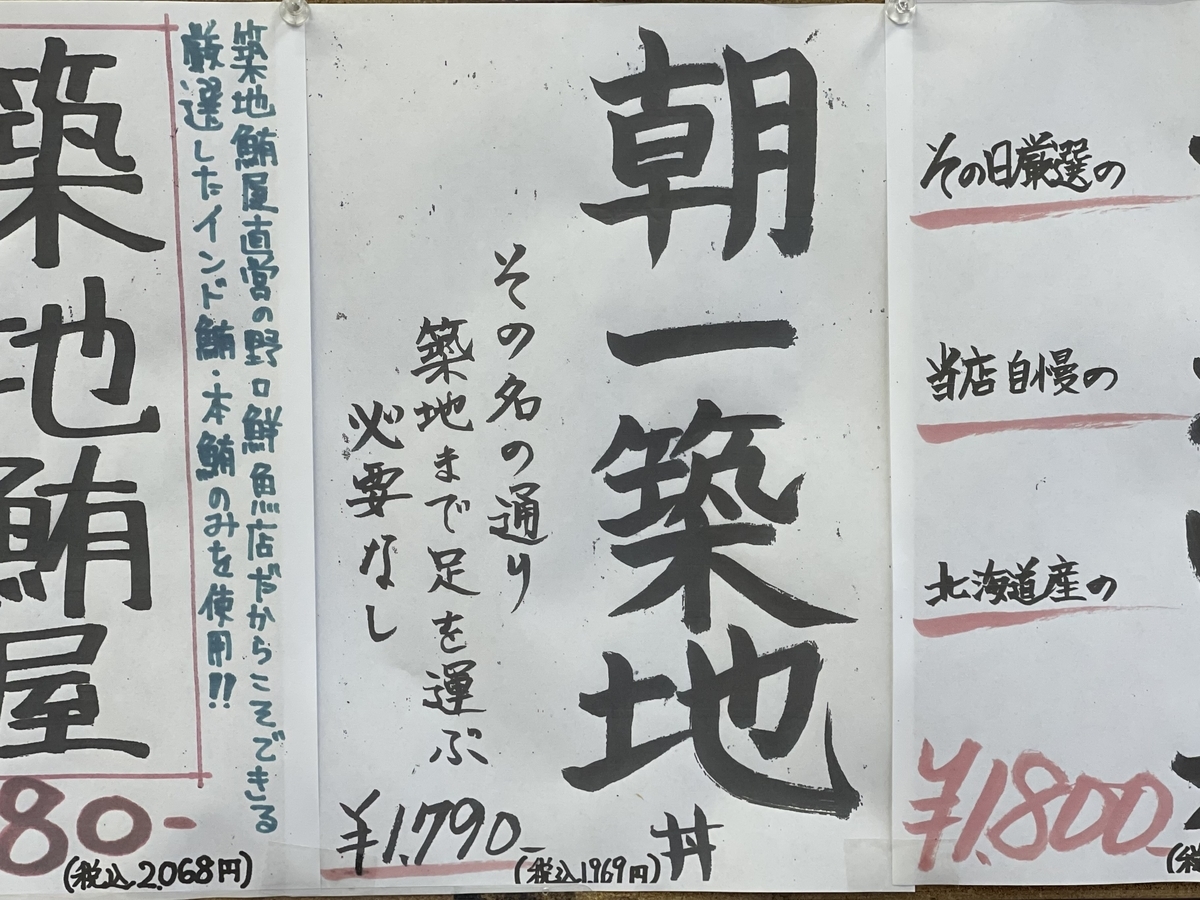 築地鮪屋
築地鮪屋直営の野口鮮魚店だからこそできる
厳選したインド鮪・本鮪のみを使用!!
80-
(税込2,068円)
朝一築地
丼
その名の通り
築地まで足を運ぶ
必要なし
¥1,790-
(税込1,969円)
その日厳選の
当店自慢の
北海道産の
¥1,800-